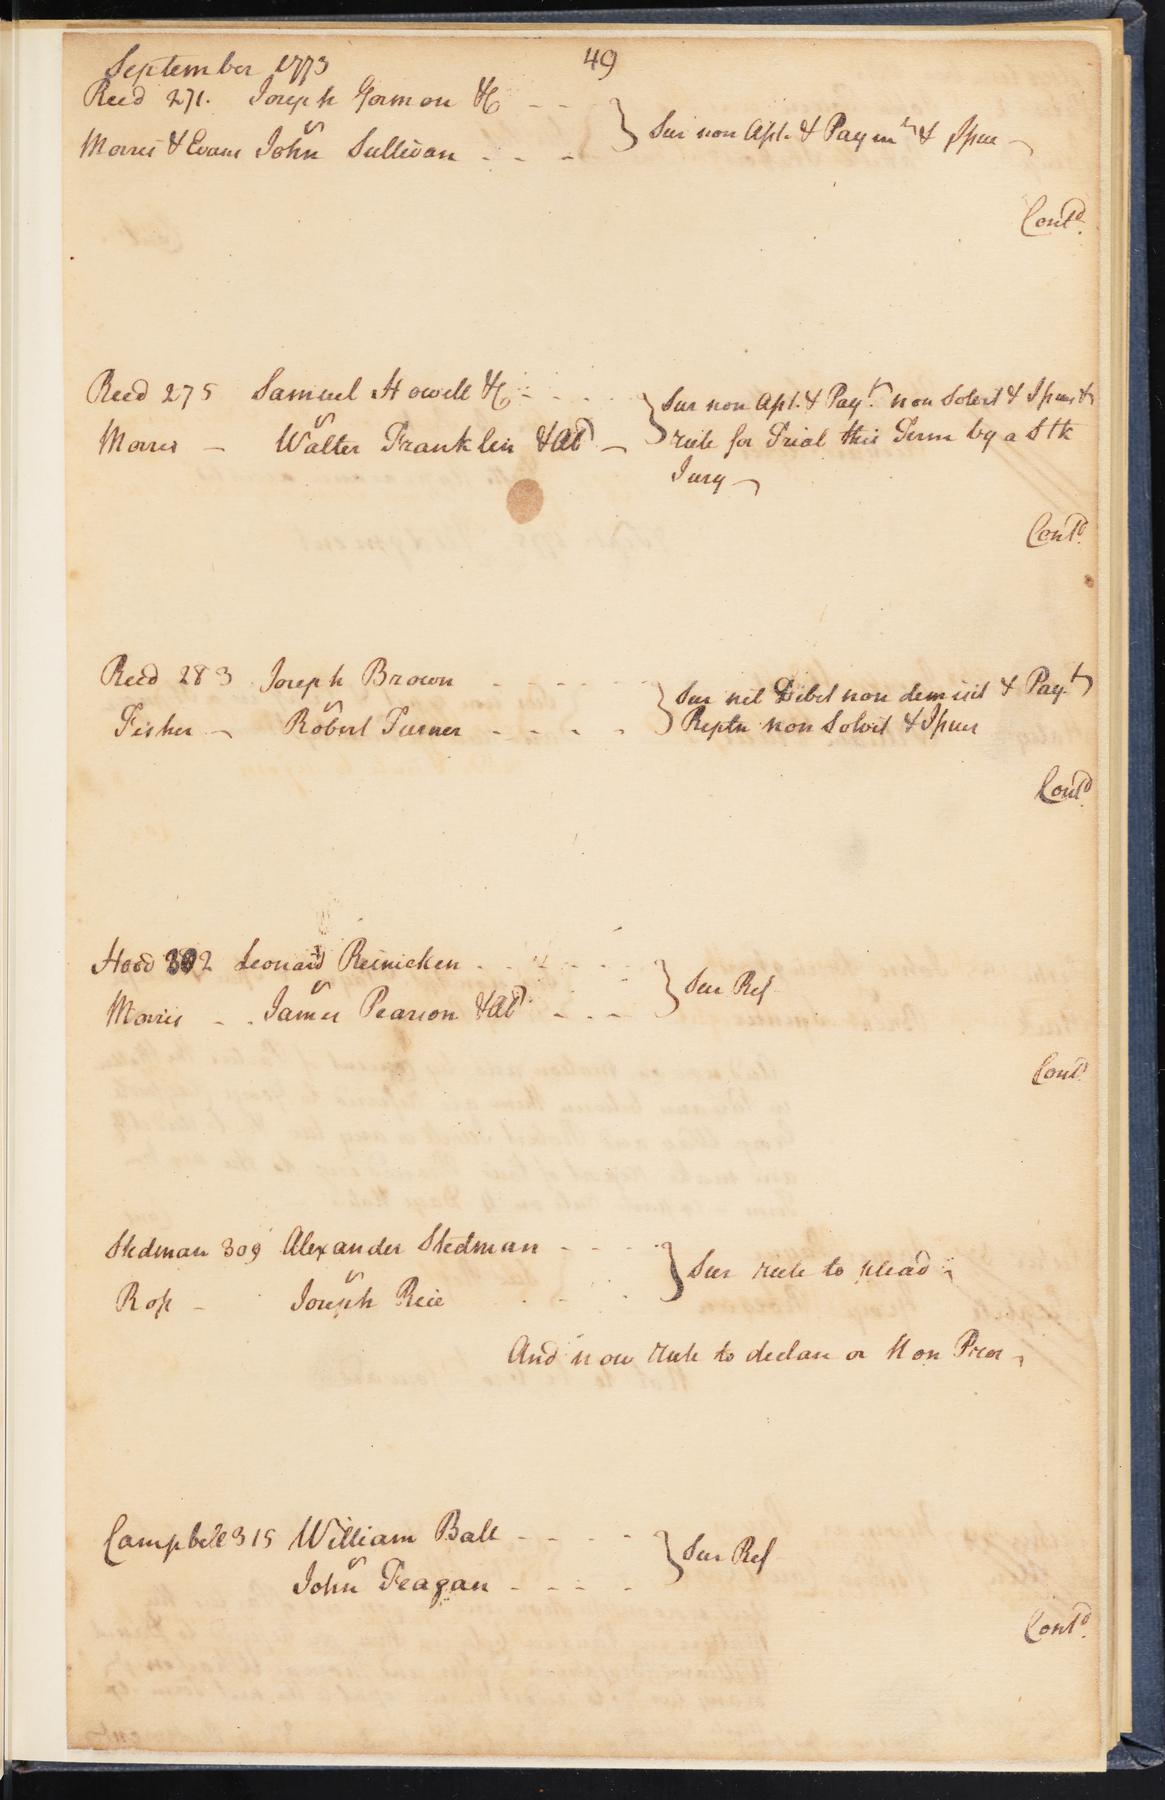 September 1773
49
Reed 271. Joseph Gormon &c
vs
Morris & Evans John Sullivan
Sur non Aft. & Paymt & Spue
Contd.
Reed 275 Samuel Howell &c
vs
Morris Walter Franklin & Ald
Sur non Aft. & Payt. non Solvt & Spues &
rule for Trial this Term by a Stk
Jury
Contd.
Reed 283 Joseph Brown
vs
Fisher Robert Turner
Sur nil Debet non demisit & Payt
Reptn non Solvit & Spues
Contd.
Hood 302 Leonard Reinicken
vs
Morris James Pearson & Ald
Sur Ref
Contd.
Stedman 309 Alexander Stedman
vs
Ross Joseph Rice
Sur rule to plead
And now rule to declare or Non Pros
Campbell 315 William Ball
vs
John Feagan
Sur Ref
Contd.